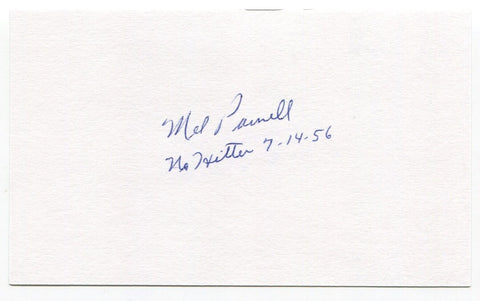 Mel Parnell
No Hitter 7-14-56